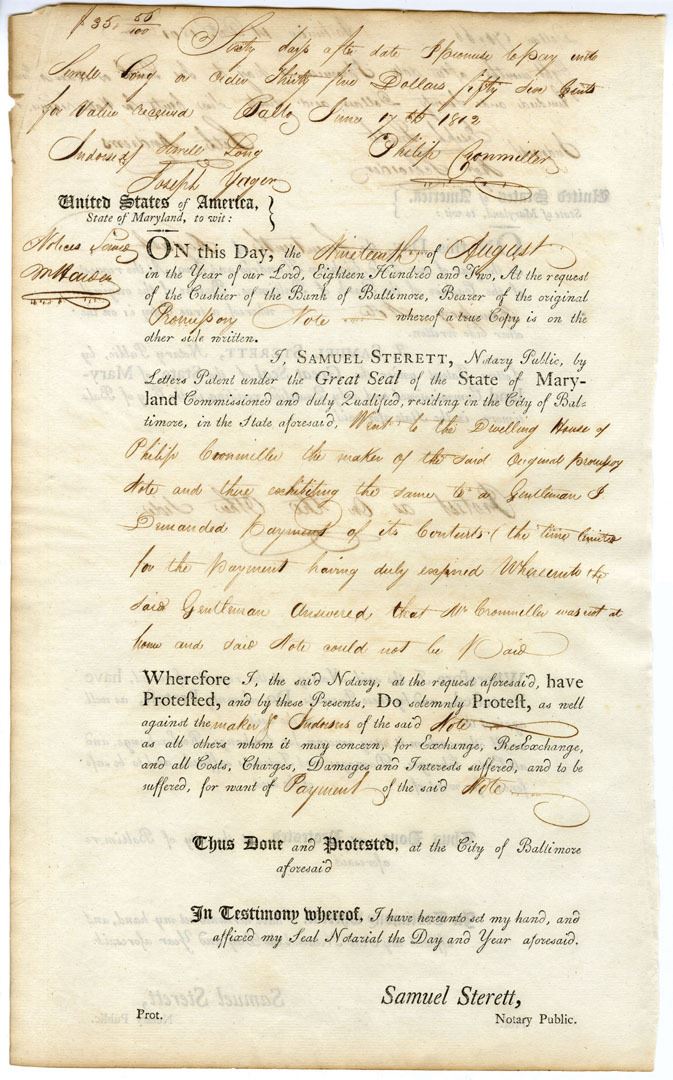 $35. 56/100
Sixty days after date I promise to pay unto
Long or order Thirty five Dollars fifty six Cents
for Value received Balto June 17th 1802
Philip Cronmiller
Indorsed Long
Joseph Yager
United States of America, }
State of Maryland, to wit:
Notices
ON this Day, the Nineteenth of August
in the Year of our Lord, Eighteen Hundred and Two, At the request
of the Cashier of the Bank of Baltimore, Bearer of the original
Promissory Note whereof a true Copy is on the
other side written.
I, SAMUEL STERETT, Notary Public, by
Letters Patent under the Great Seal of the State of Mary-
land Commissioned and duly Qualified, residing in the City of Bal-
timore, in the State aforesaid, Went to the Dwelling House of
Philip Cronmiller the maker of the said Original promissory
Note and there exhibiting the same to a Gentleman I
Demanded Payment of its Contents (the time limited
for the Payment having duly expired Whereunto the
said Gentleman Answered that Mr Cronmiller was not at
home and said Note could not be Paid
Wherefore I, the said Notary, at the request aforesaid, have
Protested, and by these Presents, Do solemnly Protest, as well
against the maker & Indorsers of the said Note
as all others whom it may concern, for Exchange, Re-Exchange,
and all Costs, Charges, Damages and Interests suffered, and to be
suffered, for want of Payment of the said Note
Thus Done and Protested, at the City of Baltimore
aforesaid
In Testimony whereof, I have hereunto set my hand, and
affixed my Seal Notarial the Day and Year aforesaid.
Samuel Sterett,
Prot. Notary Public.